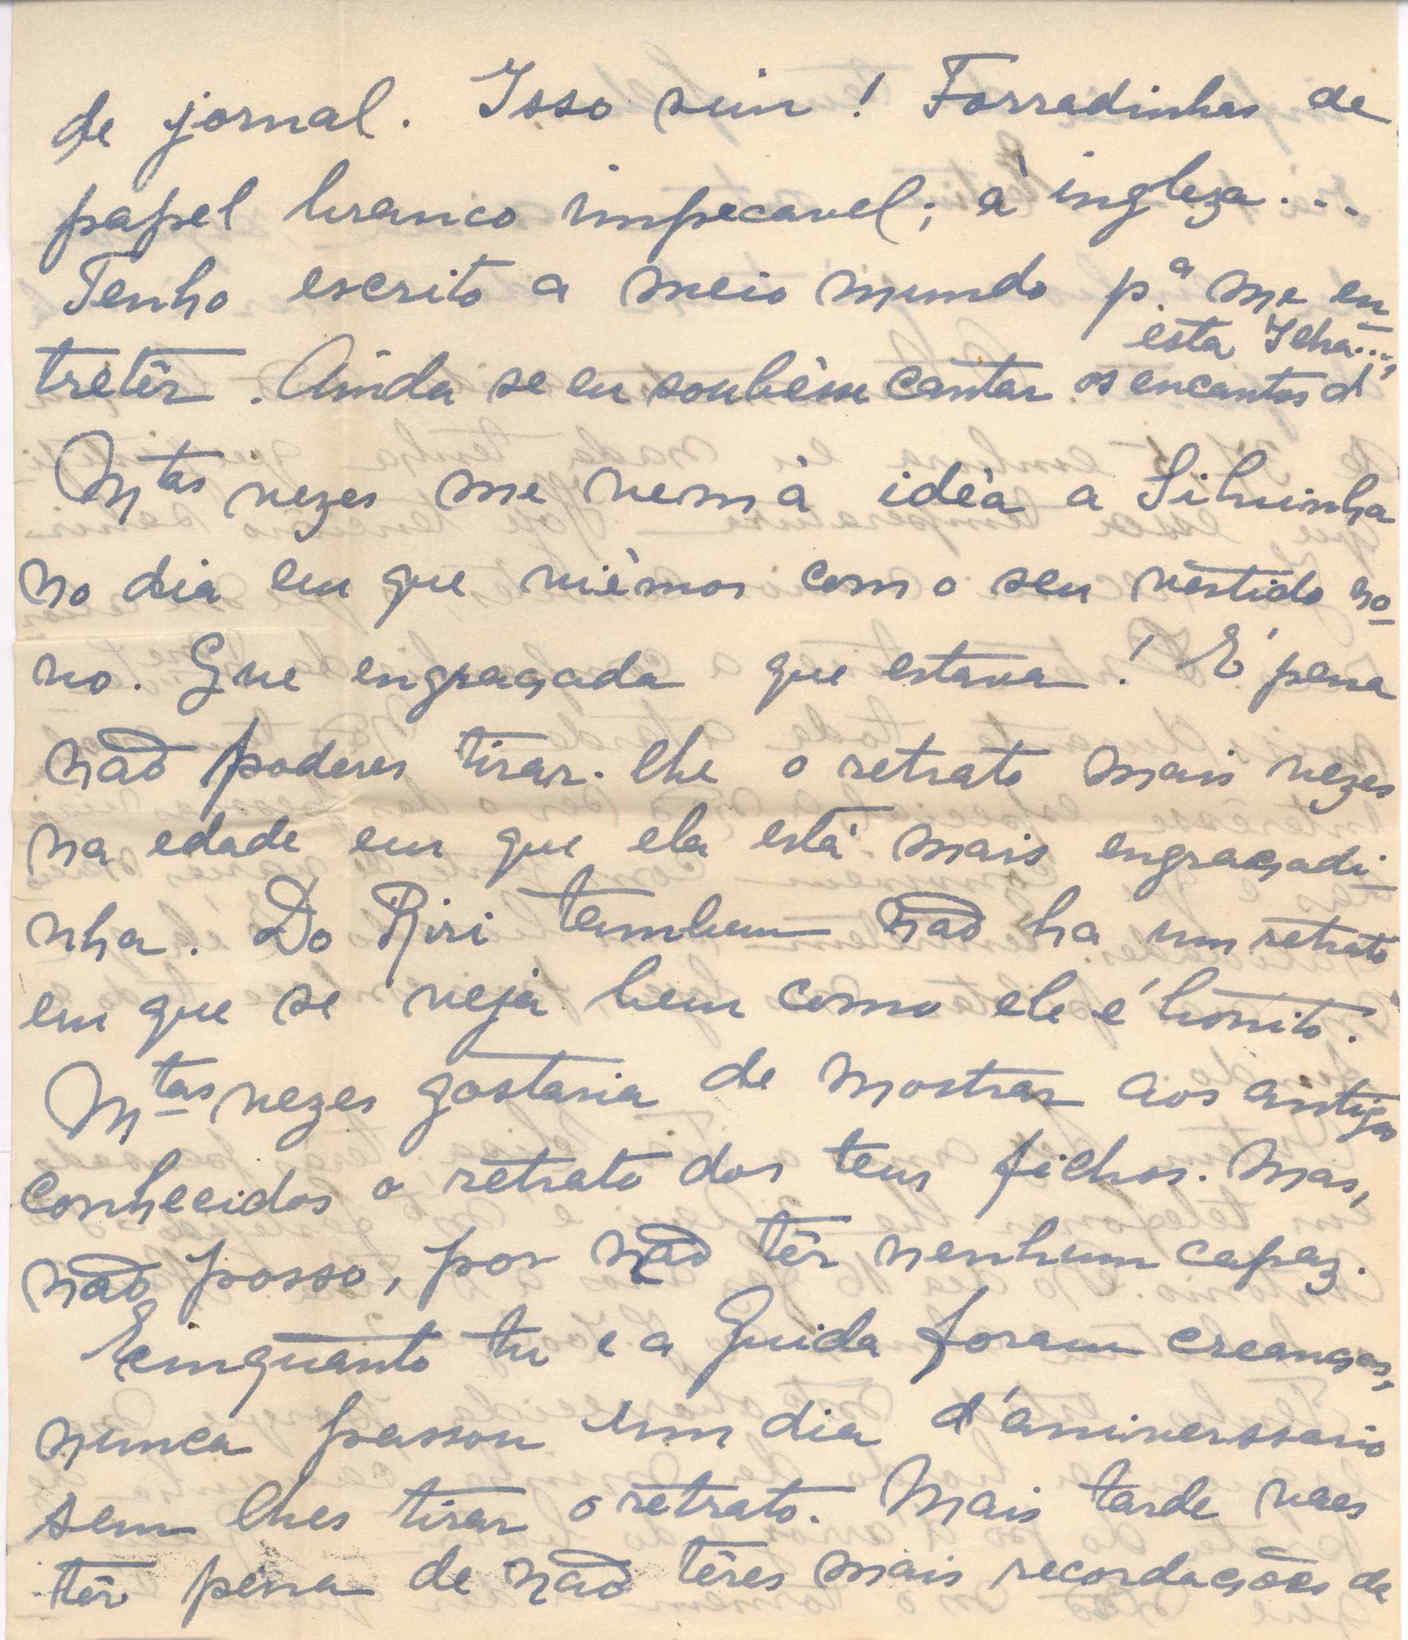 de jornal. Isso sim! Forradinhas de
papel branco impecavel; à ingleza...
Tenho escrito a meio mundo p.ª me en
tretêr. Ainda se eu soubésse cantar os encantos d'
esta Ilha...,
Mtas vezes me vem à idéa a Silvinha
no dia em que viémos com o seu vestido no-
vo. Que engraçada que estava! É pena
não poderes tirar-lhe o retrato mais vezes
na edade em que ela está mais engraçadi-
nha. Do Riri tambem não ha um retrato
em que se veja bem como ele é bonito.
Mtas vezes gostaria de mostrar aos antigos
conhecidos o retrato dos teus filhos. Mas,
não posso, por não têr nenhum capaz.
Emquanto tu e a Guida foram creanças,
nunca passou um dia d'aniverssario
sem lhes tirar o retrato. Mais tarde vaes
têr pena de não têres mais recordações da